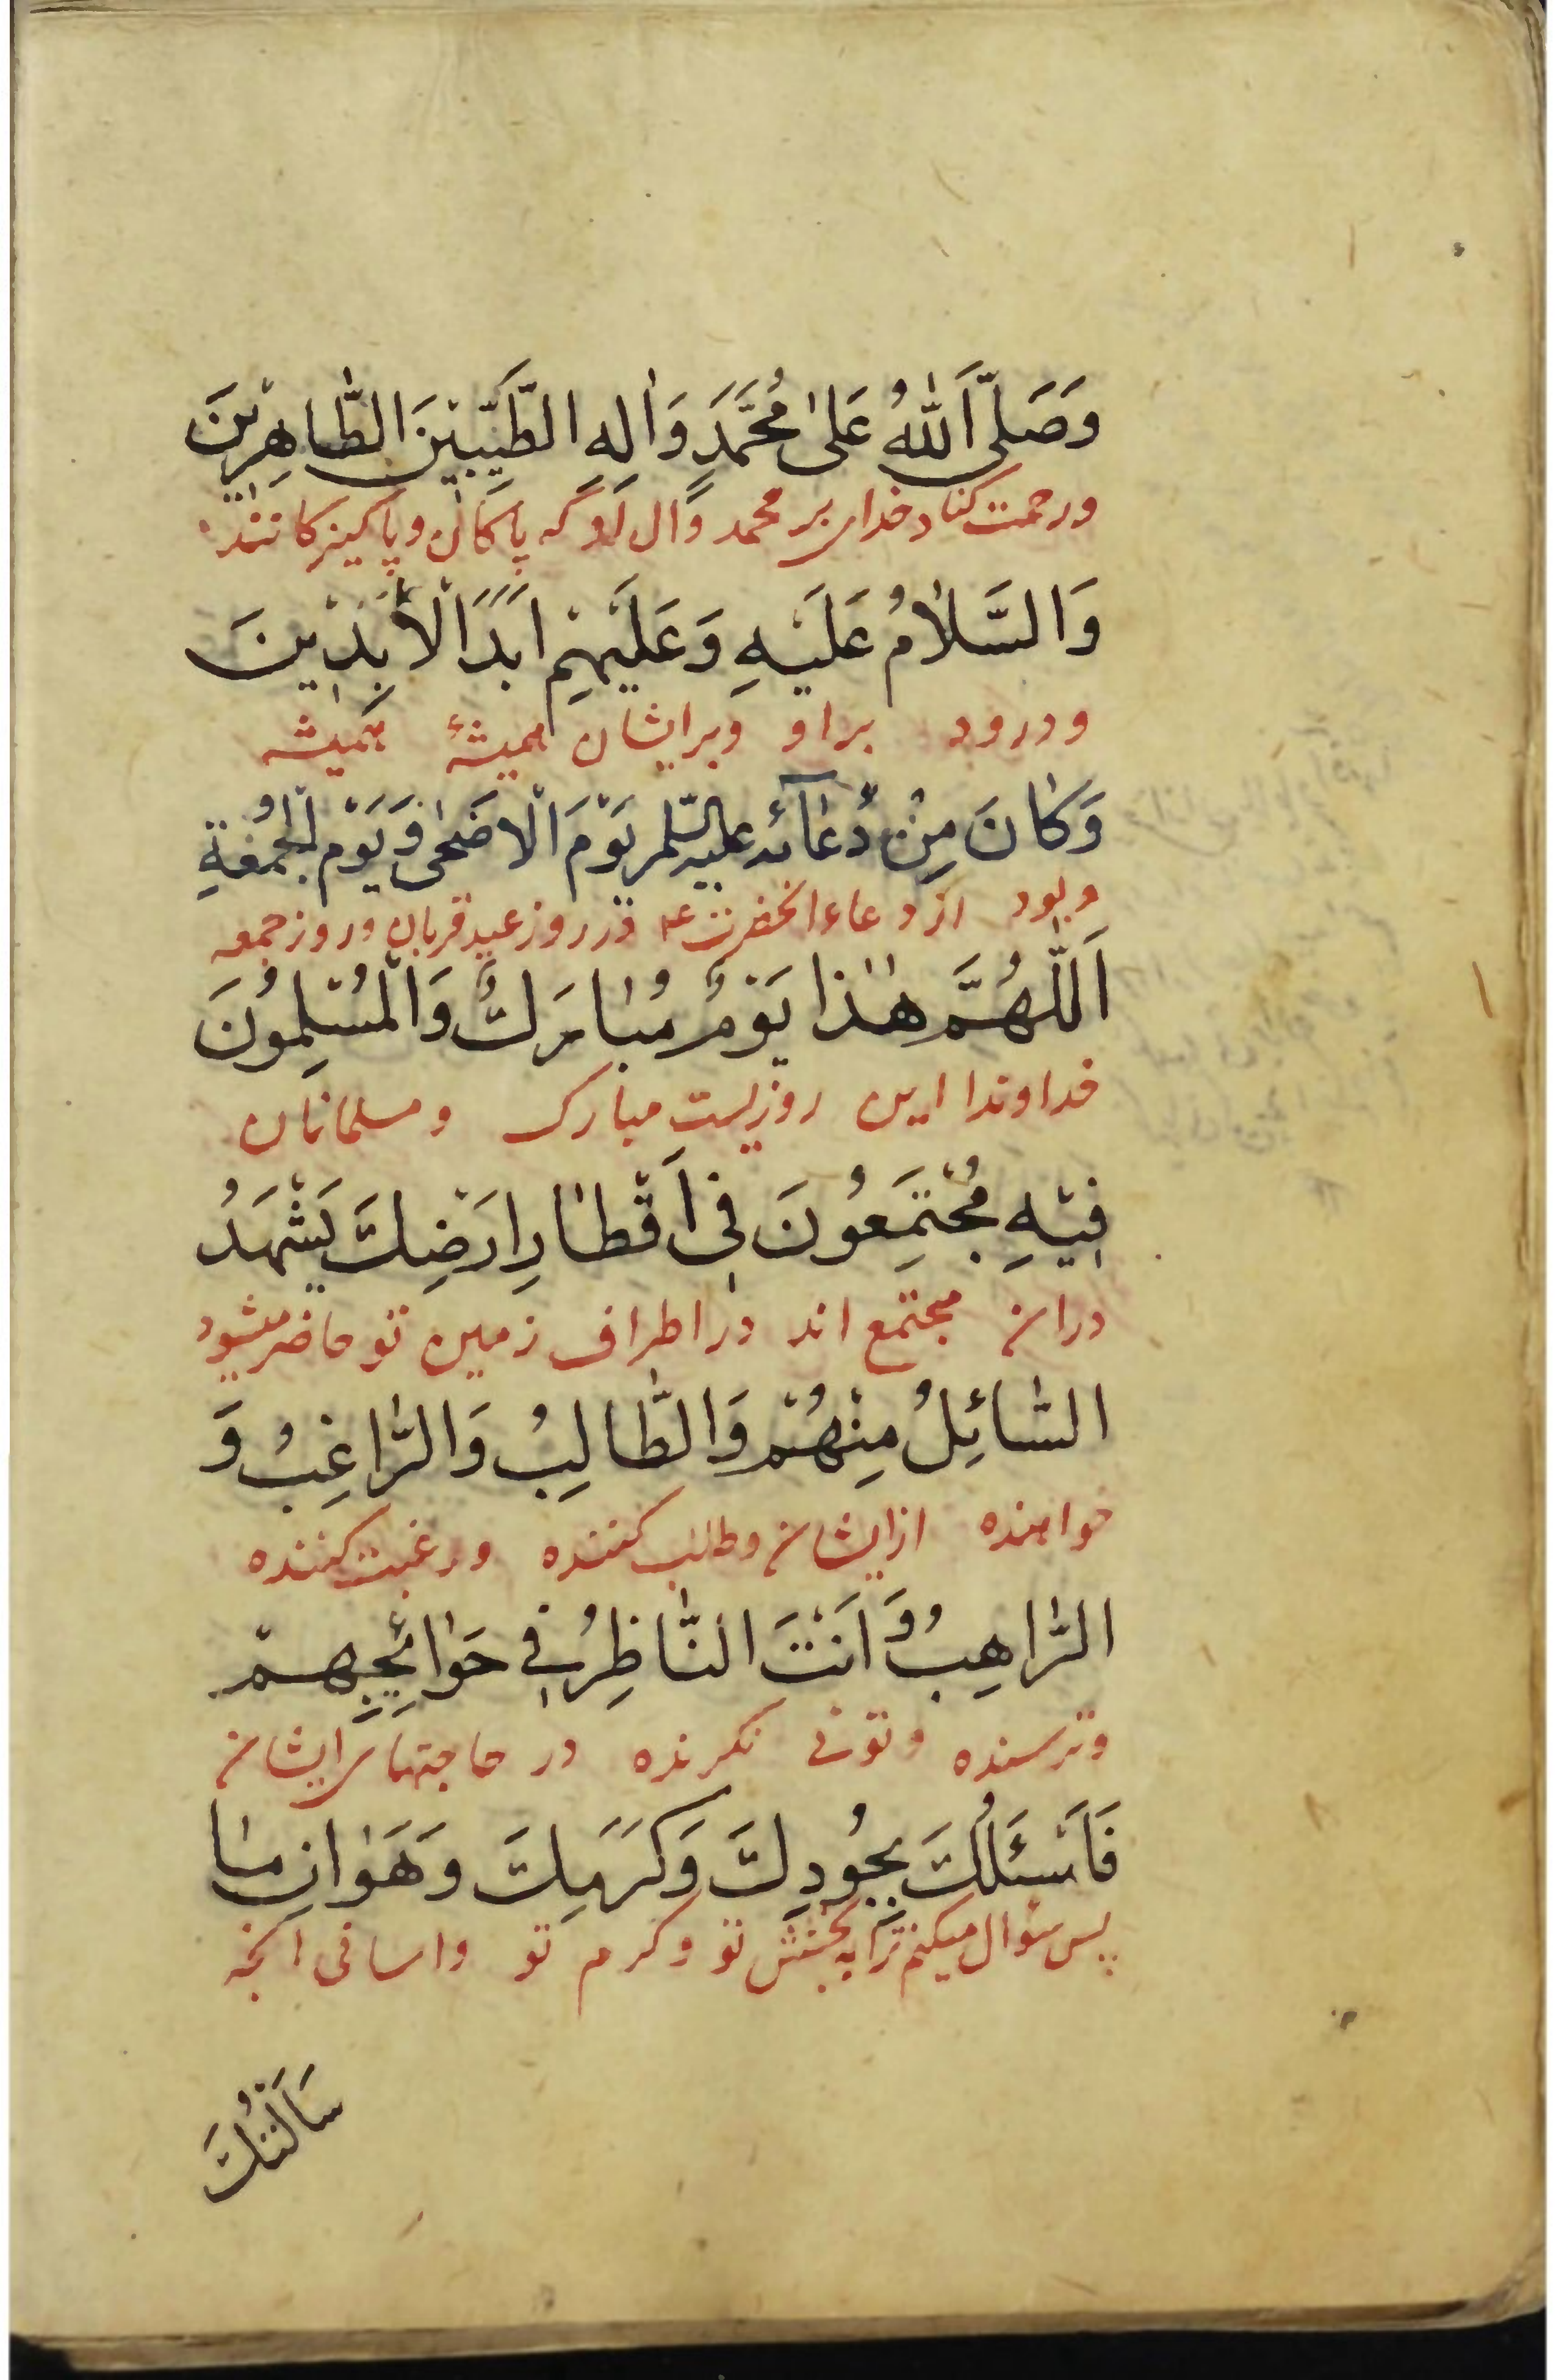 وَصَلَّى اَللّٰهُ عَلىٰ مُحَمَّدٍ وَاٰلِهِ الطَّيِّبِيْنَ الطّٰاهِرِيْنَ
ورحمت کناد خدای بر محمد وال او که پاکان و پاکیزکانند
وَالسَّلاٰمُ عَلَيْهِ وَعَلَيْهِمْ اَبَدَ الْاٰبِدٖينَ
ودرود براو وبرایشان همیشهٔ همیشه
وَكٰانَ مِنْ دُعٰآئِه عليه السّلم يَوْمَ الْاَضْحٰى وَيَوْمَ الْجُمُعَةِ
وبود از دعاء انحضرت ع‍ در روز عید قربان وروز جمعه
اَللّٰهُمَّ هٰذٰا يَوْمٌ مُبٰارَكٌ وَالْمُسْلِمُونَ
خداوندا این روزیست مبارک ومسلمانان
فٖيْهِ مُجْتَمِعُونَ فٖي اَقْطٰارِ اَرْضِكَ يَشْهَدُ
دران مجتمع اند در اطراف زمین تو حاضر میشود
السّٰائِلُ مِنْهُمْ وَالطّٰالِبُ وَالرّٰاغِبُ وَ
خواهنده ازایشان وطلب کننده ورغبت کننده
الرّٰاهِبُ وَاَنْتَ النّٰاظِرُ فٖي حَوٰائِجِهِمْ
وترسنده وتوئی نکرنده در حاجتهای ایشان
فَاَسْئَلُكَ بِجُودِكَ وَكَرَمِكَ وَهَوٰانِ مٰا
پس سؤال میکنم ترا به بخشش تو وکرم تو واسانی انچه
سَاَلْتُكَ